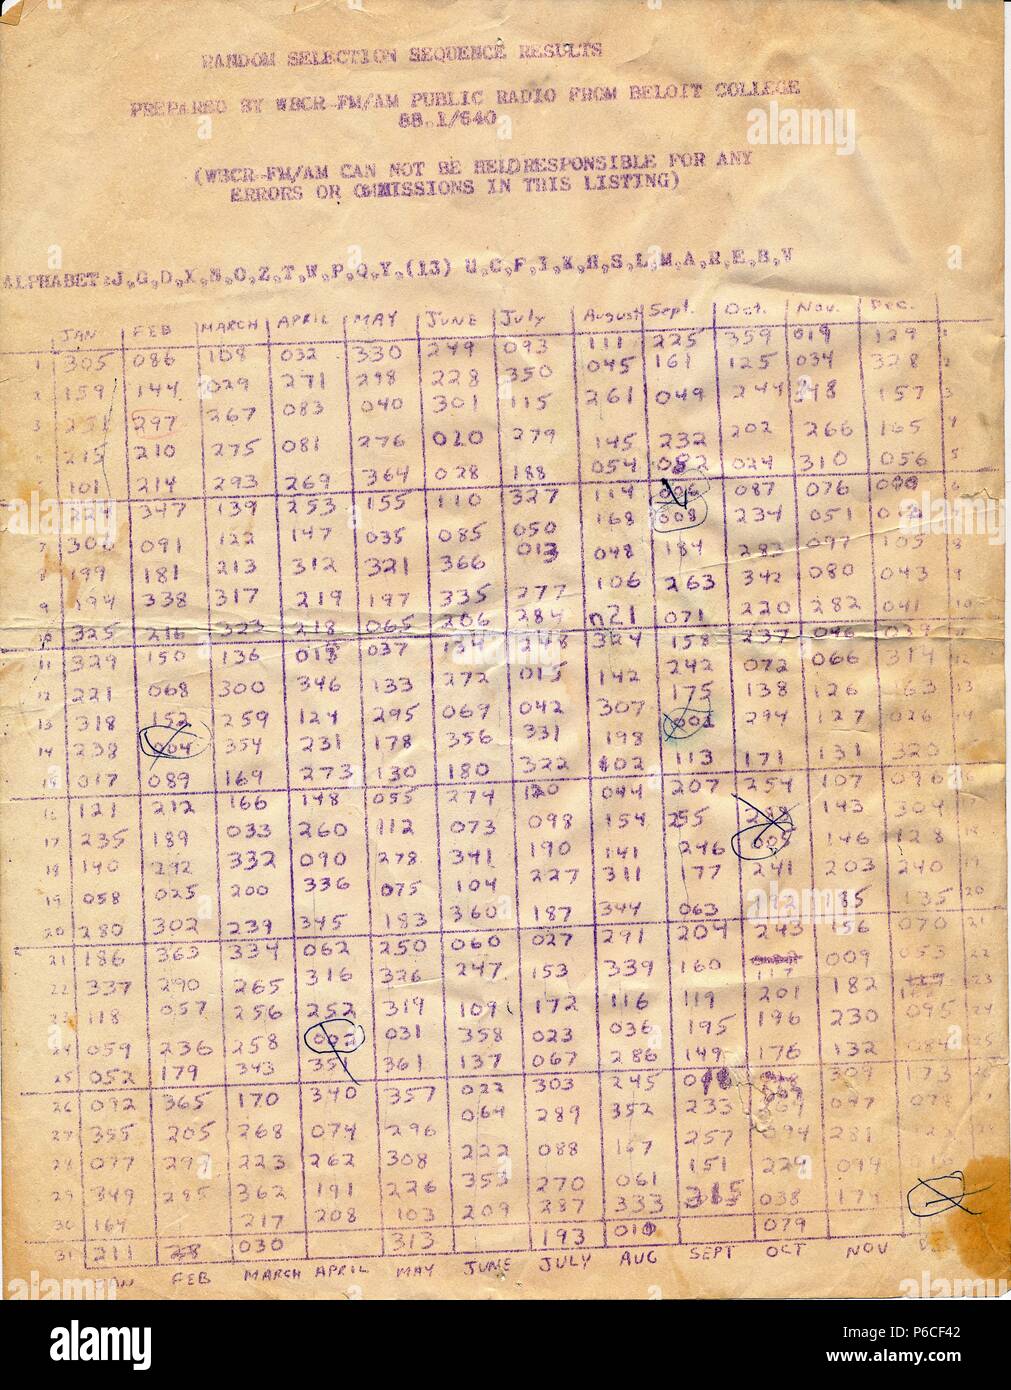 RANDOM SELECTION SEQUENCE RESULTS
PREPARED BY WBCR-FM/AM PUBLIC RADIO FROM BELOIT COLLEGE
88.1/640
(WBCR-FM/AM CAN NOT BE HELD RESPONSIBLE FOR ANY
ERRORS OR OMMISSIONS IN THIS LISTING)
ALPHABET:J,G,D,X,N,O,Z,T,W,P,Q,Y,(13) U,C,F,I,K,H,S,L,M,A,R,E,B,V
JAN FEB MARCH APRIL MAY JUNE July August Sept. Oct. Nov. Dec.
1 305 086 108 032 330 249 093 111 225 359 019 129 1
2 159 144 029 271 298 228 350 045 161 125 034 328 2
3 251 297 267 083 040 301 115 261 049 244 348 157 3
215 210 275 081 276 020 279 145 232 202 266 165 4
101 214 293 269 364 028 188 054 082 024 310 056 5
224 347 139 253 155 110 327 114 006 087 076 6
7 306 091 122 147 035 085 050 168 008 234 051
8 199 181 213 312 321 366 013 048 184 283 097 105 8
9 194 338 317 219 197 335 277 106 263 342 080 043 9
10 325 216 323 218 065 206 284 n21 071 220 282 041 10
11 329 150 136 018 037 134 248 324 158 237 046 039
12 221 068 300 346 133 272 015 142 242 072 066 314 12
13 318 152 259 124 295 069 042 307 175 138 126 163 13
14 238 004 354 231 178 356 331 198 001 294 127 026 14
15 017 089 169 273 130 180 322 102 113 171 131 320
16 121 212 166 148 055 274 120 044 207 254 107 096 16
17 235 189 033 260 112 073 098 154 255 288 143 304 17
18 140 292 332 090 278 341 190 141 246 005 146 128 18
19 058 025 200 336 075 104 227 311 177 241 203 240 19
20 280 302 239 345 183 360 187 344 063 192 185 135 20
21 186 363 334 062 250 060 027 291 204 243 156 070 21
22 337 290 265 316 326 247 153 339 160 117 009 053 22
23 118 057 256 252 319 109 172 116 119 201 182 23
24 059 236 258 002 031 358 023 036 195 196 230 095 24
25 052 179 343 351 361 137 067 286 149 176 132 084 25
26 092 365 170 340 357 022 303 245 018 309 173 26
27 355 205 268 074 296 064 289 352 233 264 047 078
28 077 299 223 262 308 222 088 167 257 094 281 123 28
29 349 285 362 191 226 353 270 061 151 229 16
30 164 217 208 103 209 287 333 315 038 174
31 211 28 030 313 193 079
JAN FEB MARCH APRIL MAY JUNE JULY AUG SEPT OCT NOV
alamy
www.alamy.com
Image ID: P6CF42